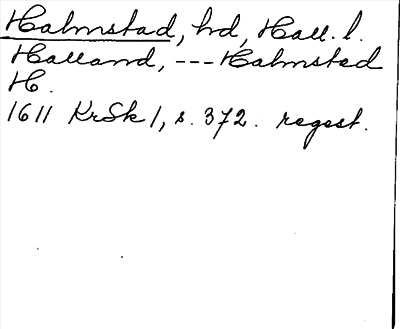 Halmstad, hd, Hall. l.
Halland, --- Halmsted
H.
1611 KrSk 1, s. 372. regest.